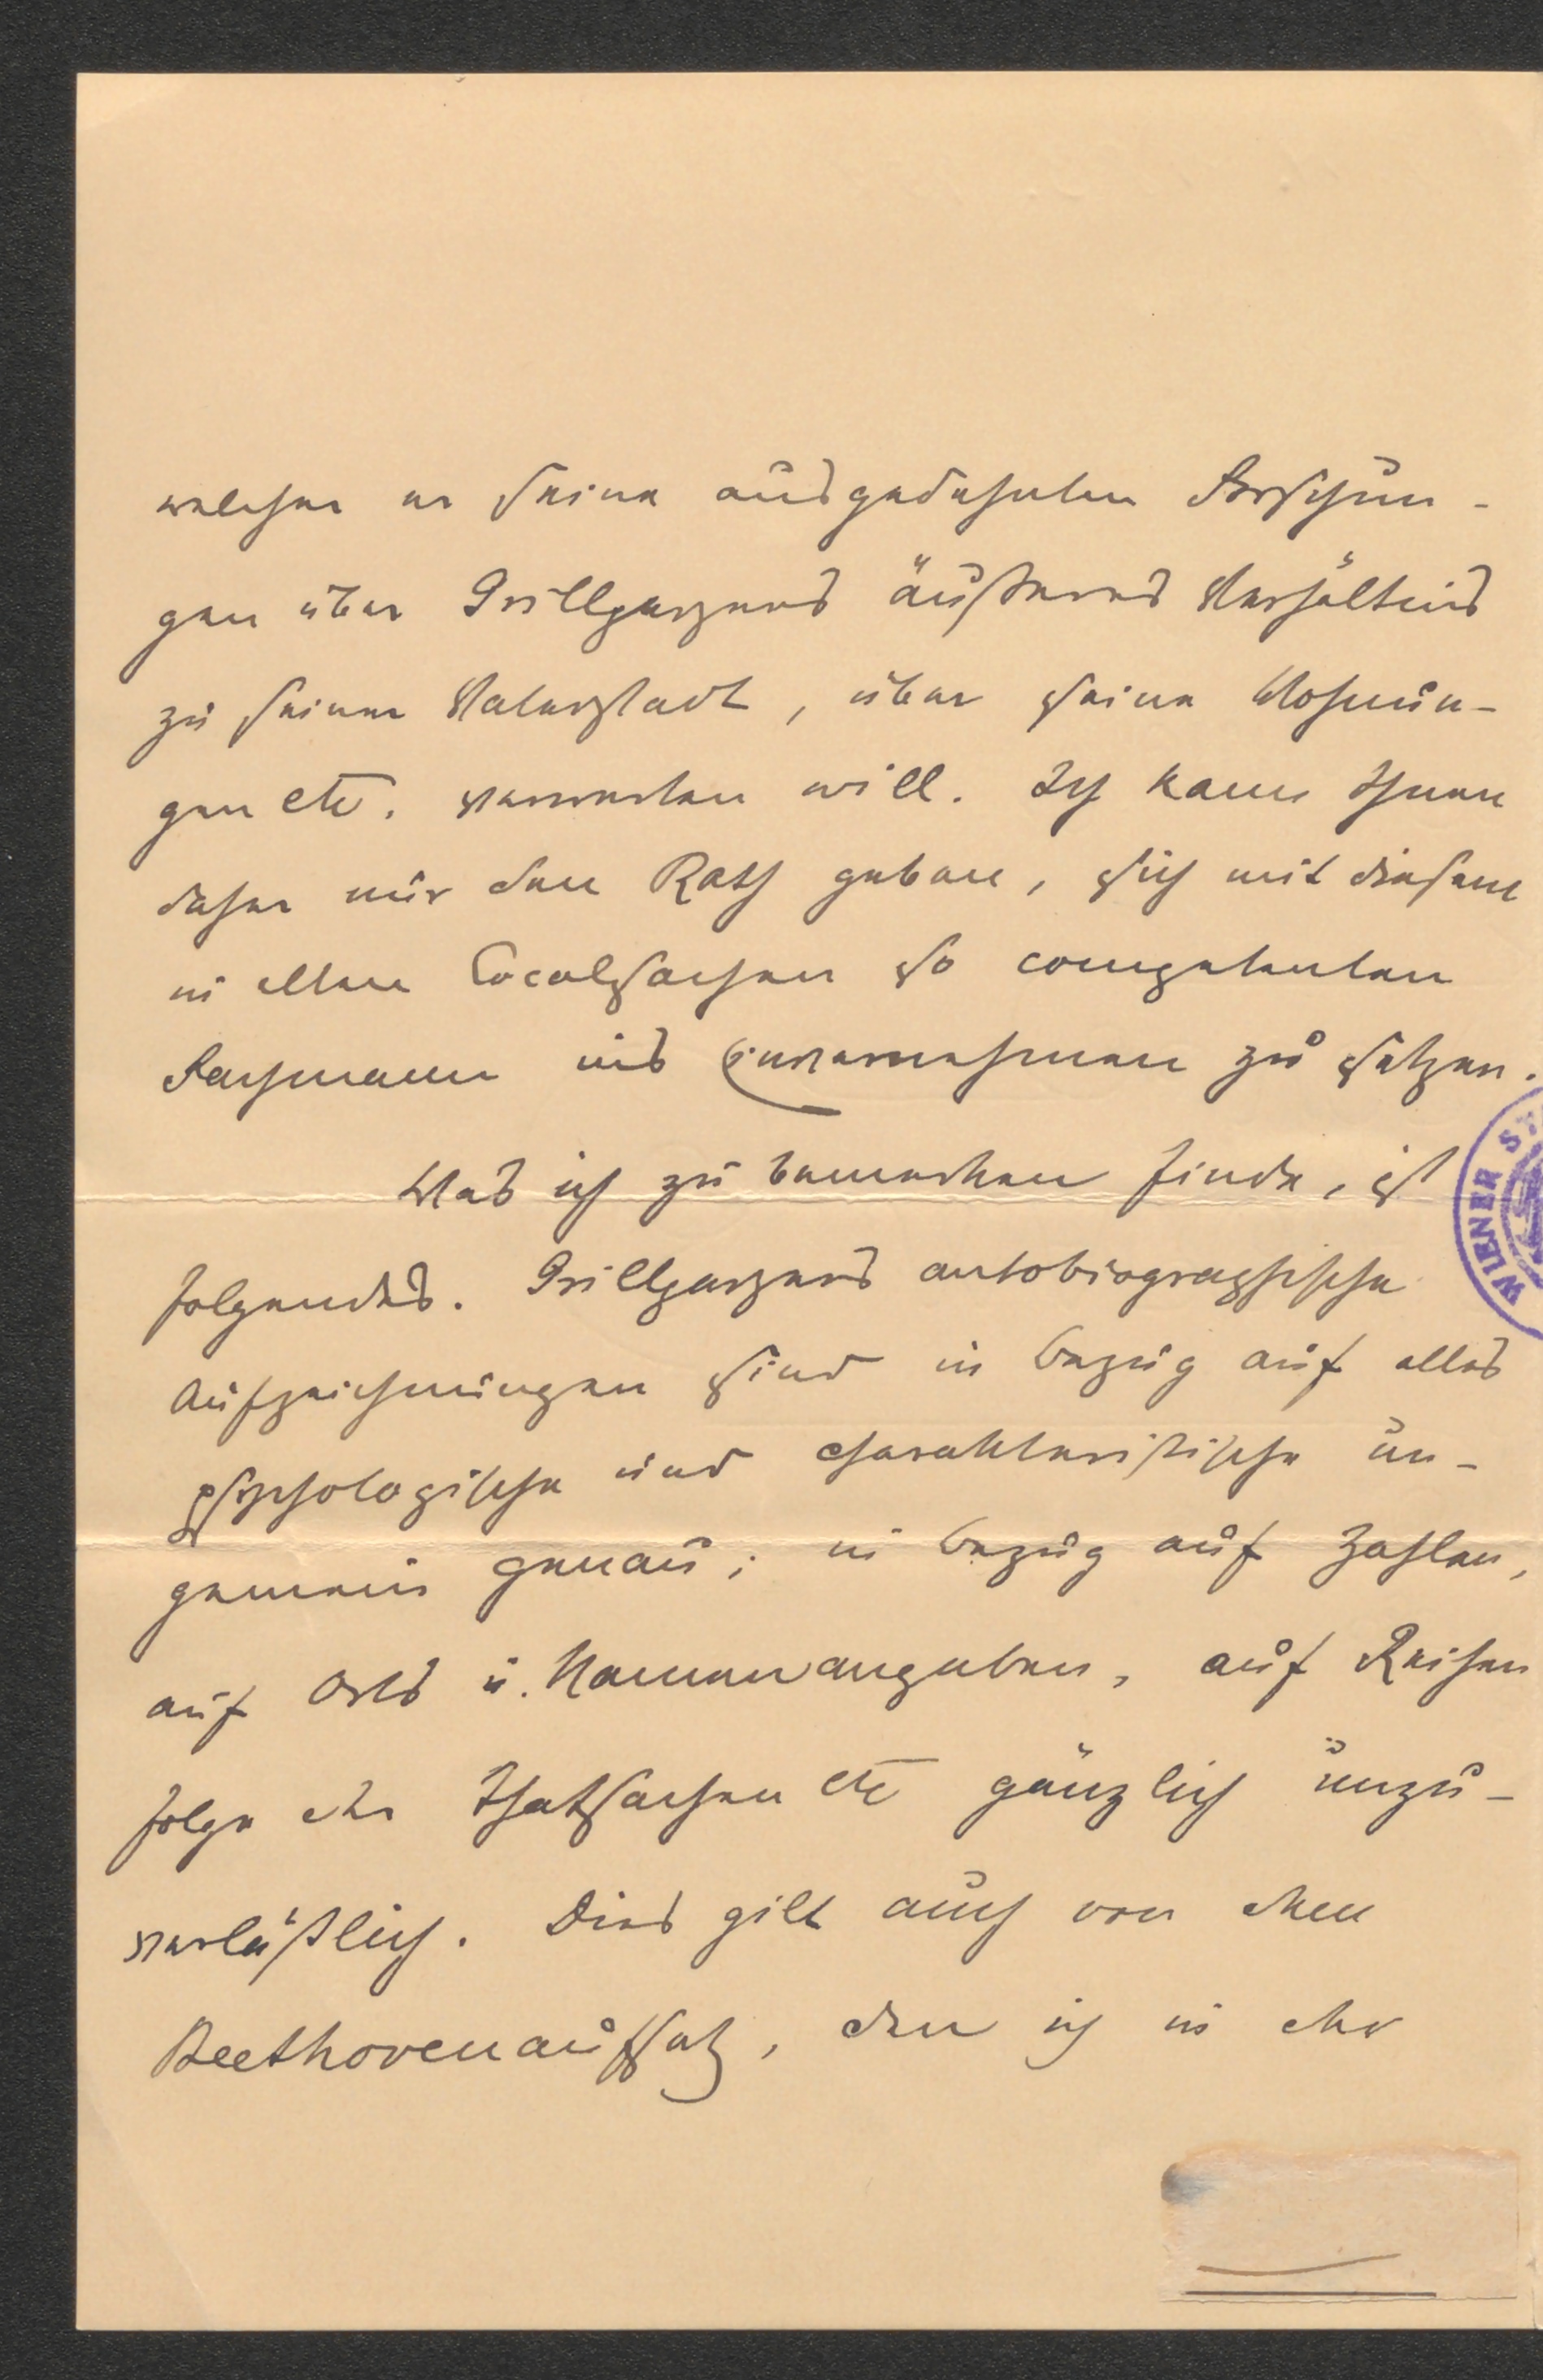 welcher er seine ausgedehnten Forschun-
gen über Grillparzers äußeres Verhältnis
zu seiner Vaterstadt, über seine Wohnun-
gen etc. verwerten will. Ich kann Ihnen
daher nur den Rath geben, sich mit diesem
in allen Localsachen so competenten
Fachmann ins Einvernehmen zu setzen.
Was ich zu bemerken finde, ist
folgendes. Grillparzers autobiographische
Aufzeichnungen sind in Bezug auf alles
psychologische und charakteristische un-
gemein genau; in Bezug auf Zahlen,
auf Orts u. Namenangaben, auf Reihen
folge der Thatsachen etc gänzlich unzu-
verläßlich. Dies gilt auch von dem
Beethovenaufsatz, den ich in der
WIENER ST